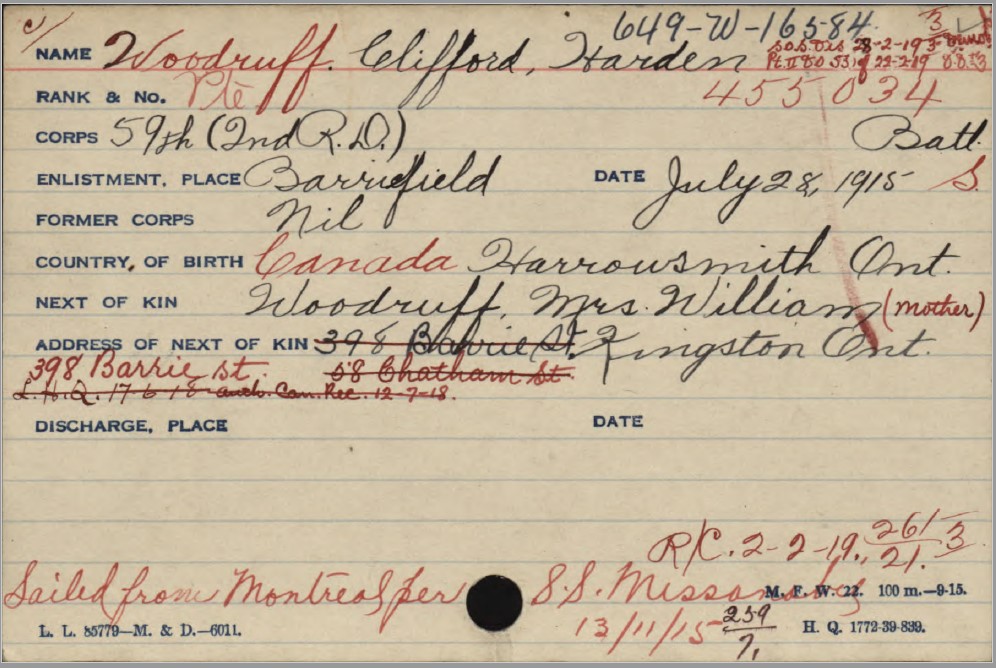 c/ 649-W-16584. 3
NAME Woodruff. Clifford, Harden S.O.S. Dis 28-2-19 3
Pt. II D.O 53 of 22-2-19 D.D. 3
RANK & No. Pte 455034
CORPS 59th (2nd R.D.) Batt.
ENLISTMENT, PLACE Barriefield DATE July 28, 1915 S.
FORMER CORPS Nil
COUNTRY, OF BIRTH Canada Harrowsmith Ont.
NEXT OF KIN Woodruff, Mrs. William (mother)
ADDRESS OF NEXT OF KIN 398 Barrie St. Kingston Ont.
398 Barrie St. 58 Chatham St.
L.H.Q. 17-6-18 auth. Can. Rec. 12-7-18.
DISCHARGE, PLACE DATE
R/C. 2-2-19. 261/21. 3
Sailed from Montreal per S.S. Missanabie
M. F. W. 22. 100 m.—9-15.
13/11/15 259/7,
L. L. 85779—M. & D.—6011. H. Q. 1772-39-839.